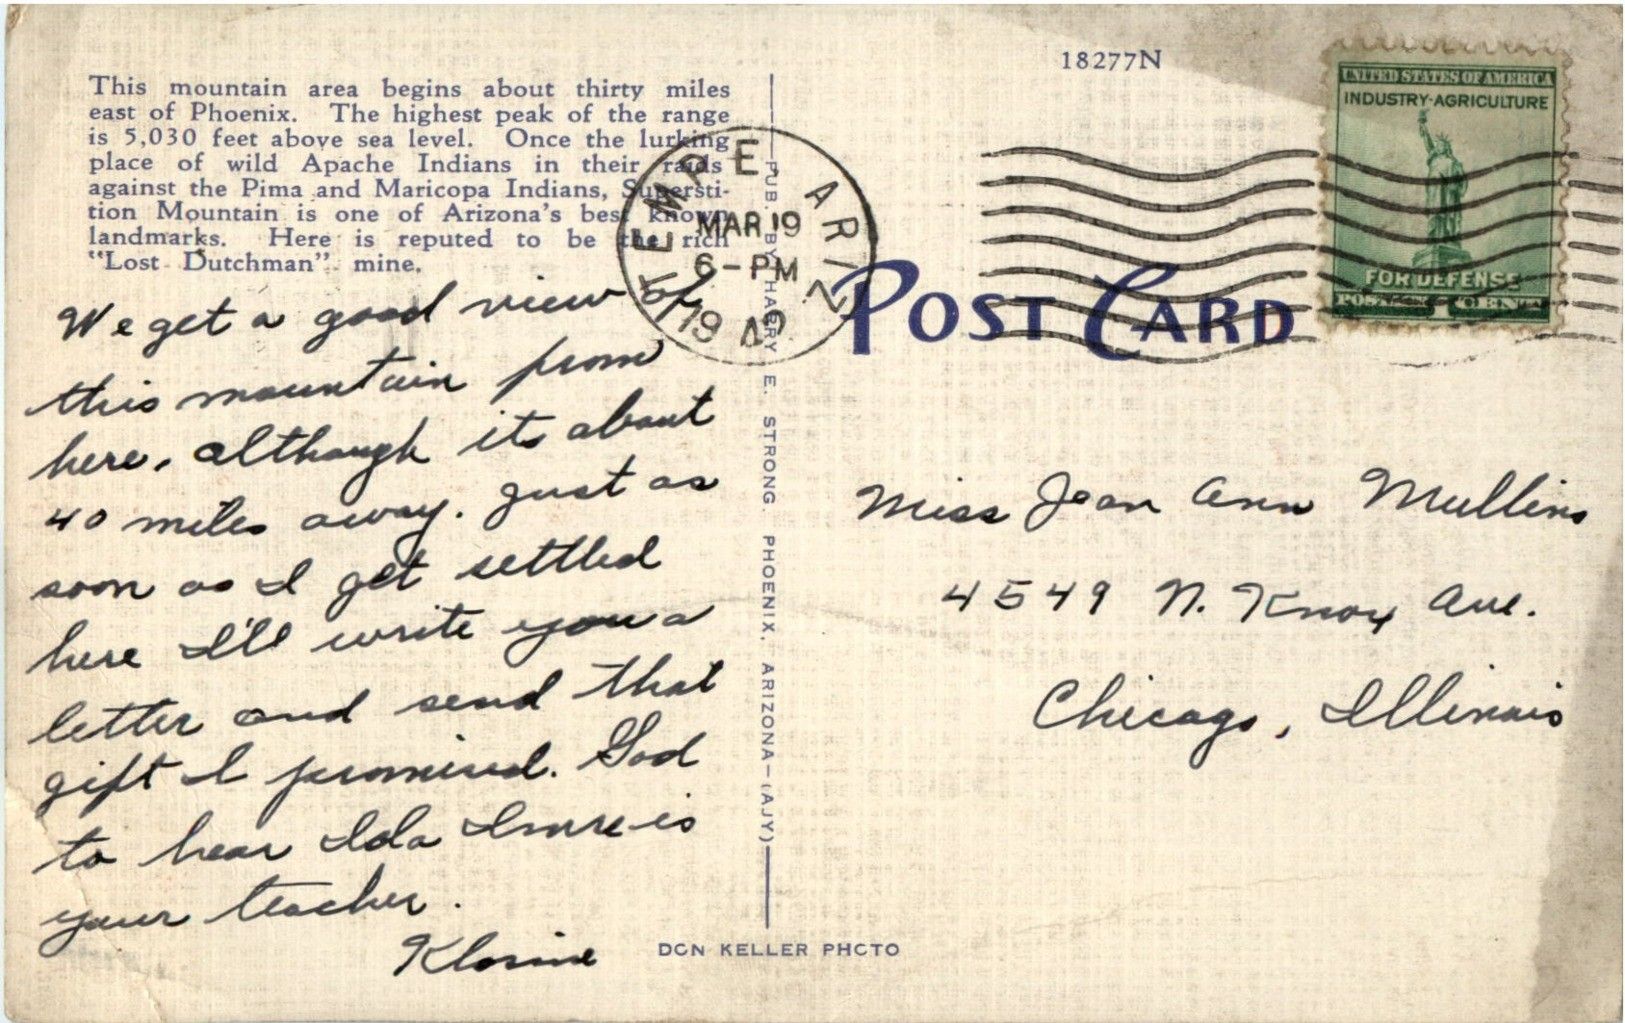 This mountain area begins about thirty miles
east of Phoenix. The highest peak of the range
is 5,030 feet above sea level. Once the lurking
place of wild Apache Indians in their raids
against the Pima and Maricopa Indians, Supersti-
tion Mountain is one of Arizona's best known
landmarks. Here is reputed to be the rich
"Lost Dutchman" mine.
We get a good view of
this mountain from
here, although its about
40 miles away. Just as
soon as I get settled
here I'll write you a
letter and send that
gift I promised. God
to hear Ida is
your teacher.
PUB. BY HARRY E. STRONG. PHOENIX. ARIZONA—(AJY)
DON KELLER PHOTO
18277N
UNITED STATES OF AMERICA
INDUSTRY-AGRICULTURE
FOR DEFENSE
POSTAGE 1 CENT
TEMPE ARIZ.
MAR 19
6-PM
19
POST CARD
Miss Jean Ann Mullins
4549 N. Knox Ave.
Chicago, Illinois